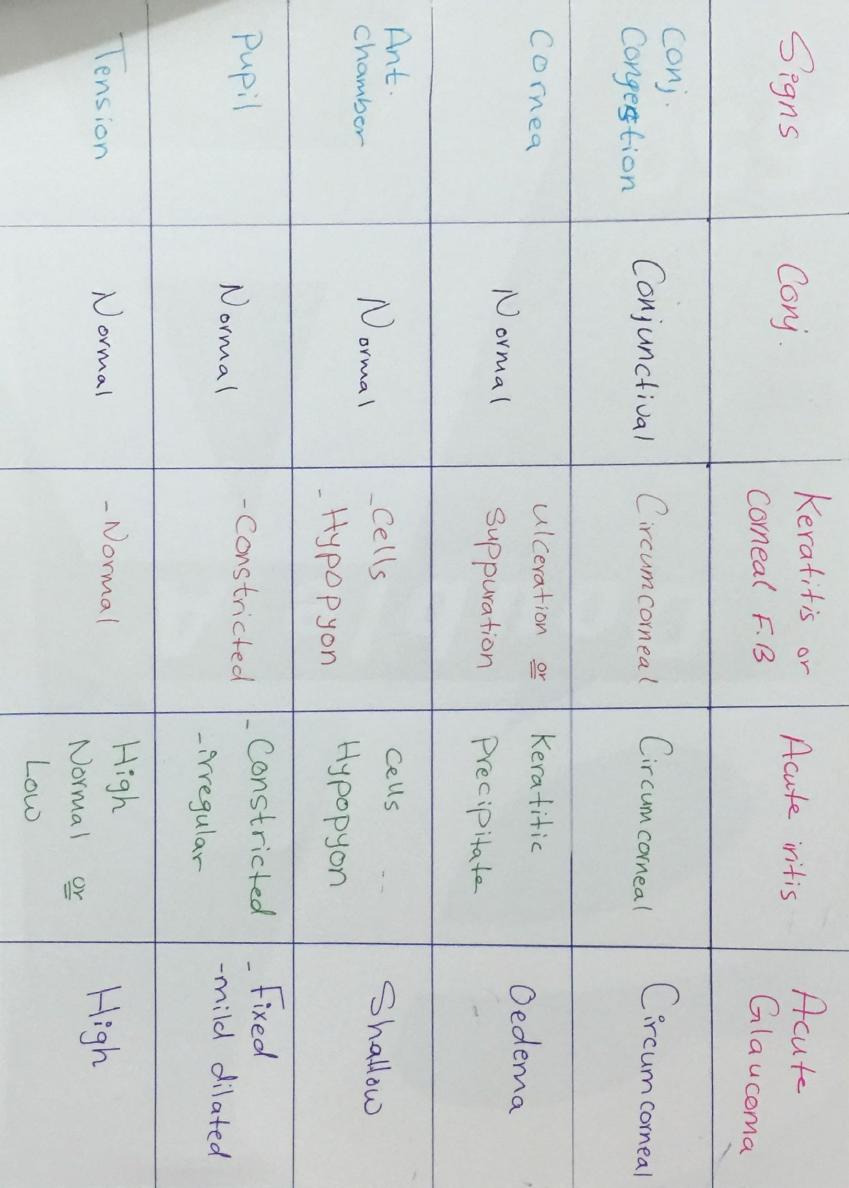 Signs
Conj.
Keratitis or
Corneal F.B
Acute iritis
Acute
Glaucoma
Conj.
Congestion
Conjunctival
Circumcorneal
Circumcorneal
Circumcorneal
Cornea
Normal
ulceration or
Suppuration
Keratitic
Precipitate
Oedema
Ant.
chamber
Normal
-Cells
-Hypopyon
cells
Hypopyon
Shallow
Pupil
Normal
-Constricted
-Constricted
-irregular
-Fixed
-mild dilated
Tension
Normal
-Normal
High
Normal or
Low
High